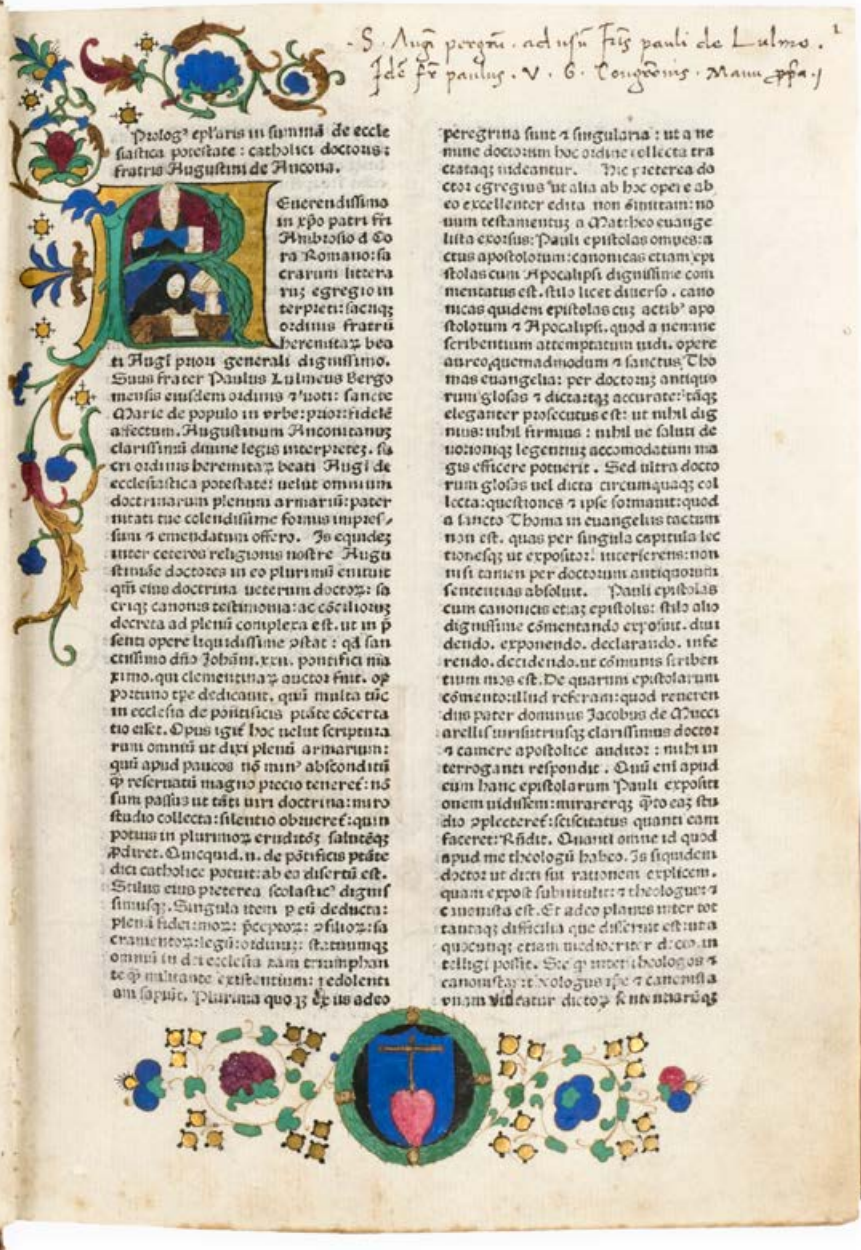 S. Augi pergmi. ad usu Fris pauli de Lulmo.
Ide fr paulus. V. G. Congrõnis. Manu ppa.
1
Prologꝰ eplaris in summã de eccle
siastica potestate: catholici doctoris:
fratris Augustini de Ancona.
REuerendissimo
in xp̃o patri fri
Ambrosio d Co
ra Romano: sa
crarum littera
ruꝫ egregio in
terpreti: sacriqꝫ
ordinis fratrũ
heremitaꝝ bea
ti Augĩ priori generali dignissimo.
Suus frater Paulus Lulmeus Bergo
mensis eiusdem ordinis ⁊ uoti: sancte
Marie de populo in vrbe: prior: fidelẽ
affectum. Augustinum Anconitanuꝫ
clarissimũ diuine legis interpreteꝫ. sa
cri ordinis heremitaꝝ beati Augĩ de
ecclesiastica potestate: uelut omnium
doctrinarum plenum armariũ: pater
nitati tue colendissime formis impres/
sum ⁊ emendatum offero. Is equideꝫ
inter ceteros religionis nostre Augu
stiniãe doctores in eo plurimũ enituit
qm̃ eius doctrina ueterum doctoꝝ: sa
criqꝫ canonis testimonia: ac cõcilioruꝫ
decreta ad plenũ complexa est. ut in p̃
senti opere liquidissime ꝯstat: qđ san
ctissimo dño Johãni. xxii. pontifici ma
ximo. qui clementinaꝝ auctor fuit. op
portuno tp̃e dedicauit. quũ multa tũc
in ecclesia de pontificis ptãte cõcerta
tio esset. Opus igit̃ hoc uelut scriptura
rum omniũ ut dixi plenũ armarium:
quũ apud paucos nõ minꝰ absconditũ
ꝙ reseruatũ magno precio teneret̃: nõ
sum passus ut tãti uiri doctrina: miro
studio collecta: silentio obrueret̃: quin
potuis in plurimoꝝ eruditõꝫ salutẽqꝫ
ꝓdiret. Quicquid. n. de põtificis ptãte
dici catholice potuit: ab eo disertũ est.
Stilus eius preterea scolasticꝰ dignis
simusqꝫ. Singula item p eũ deducta:
plena fidei: moꝝ: p̃ceptoꝝ: ꝯsilioꝝ: sa
cramentoꝝ: legũ: ordinũ: statuumqꝫ
omniũ in dei ecclesia tam triumphan
te ꝙ militante existentium: redolenti
am sapiũt. Plurima quoqꝫ ex iis adeo
peregrina sunt ⁊ singularia: ut a ne
mine doctorum hoc ordine collecta tra
ctataqꝫ uideantur. Hic preterea do
ctor egregius ut alia ab hoc opere ab
eo excellenter edita non omittam: no
uum testamentuꝫ a Mattheo euange
lista exorsus: Pauli epistolas omnes: a
ctus apostolorum: canonicas etiam epi
stolas cum Apocalipsi dignissime com
mentatus est. stilo licet diuerso. cano
nicas quidem epistolas cuꝫ actibꝰ apo
stolorum ⁊ Apocalipsi. quod a nemine
scribentium attemptatum uidi. opere
aureo, quemadmodum ⁊ sanctus Tho
mas euangelia: per doctoruꝫ antiquo
rum glosas ⁊ dicta: tqꝫ accurate: tãqꝫ
eleganter prosecutus est: ut nihil dig
nius: nihil firmius: nihil ue saluti de
uotioniqꝫ legentiuꝫ accomodatum ma
gis efficere potuerit. Sed ultra docto
rum glosas uel dicta circumquaqꝫ col
lecta: questiones ⁊ ipse formauit: quod
a sancto Thoma in euangeliis tactum
non est. quas per singula capitula lec
tionesqꝫ ut expositor: interserens: non
nisi tamen per doctorum antiquorum
sententias absoluit. Pauli epistolas
cum canonicis etiaꝫ epistolis: stilo alio
dignissime cõmentando exposuit. diui
dendo. exponendo. declarando. infe
rendo. decidendo. ut cõmunis scriben
tium mos est. De quarum epistolarum
cõmento: illud referam: quod reueren
dus pater dominus Jacobus de Mucci
arellis iurisutriusqꝫ clarissimus doctor
⁊ camere apostolice auditor: mihi in
terroganti respondit. Quũ eni apud
eum hanc epistolarum Pauli expositi
onem uidissem: mirarerqꝫ ꝙto eaꝫ stu
dio ꝯplecteret̃: sciscitatus quanti eam
faceret: Rñdit. Quanti omne id quod
apud me theologũ habeo. Is siquidem
doctor ut dicti sui rationem explicem.
quam expost subintulit: ⁊ theologus ⁊
canonista est. Et adeo planus inter tot
tantaqꝫ difficilia que disserit est: ut a
quocunqꝫ etiam mediocriter docto in
telligi possit. Sic ꝙ inter theologos ⁊
canonistas: theologus ipse ⁊ canonista
unam videatur dictoꝝ sententiarũqꝫ